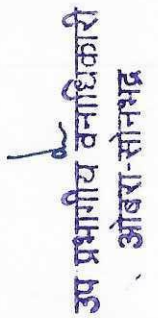 उप प्रभागीय वनाधिकारी
ओबरा-सोनभद्र